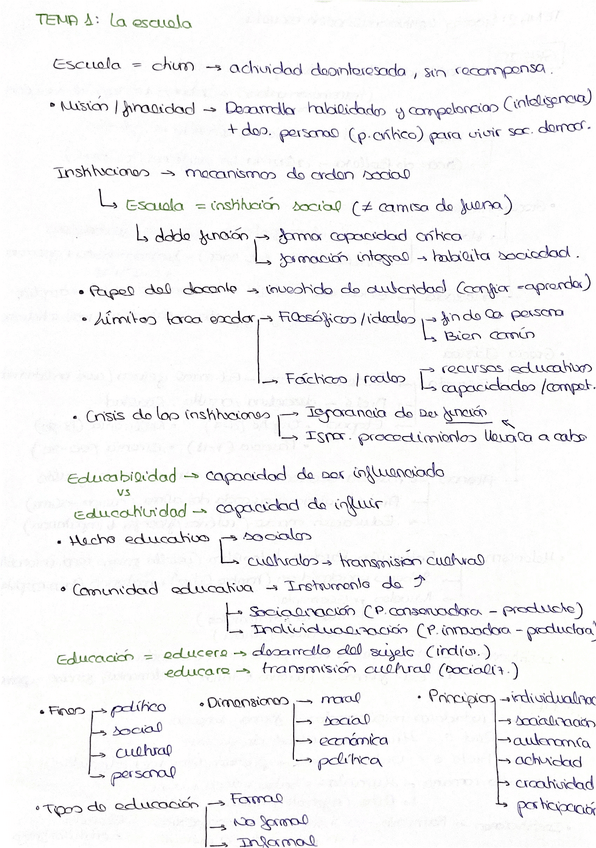 TEMA 1: La escuela
Escuela = chum → actividad desinteresada, sin recompensa.
• Misión / finalidad → Desarrollar habilidades y competencias (inteligencia)
+ des. personal (p. crítico) para vivir soc. democr.
Instituciones → mecanismos de orden social
↳ Escuela = institución social (≠ camisa de fuerza)
↳ doble función → formar capacidad crítica
↳ formación integral → habilita sociedad.
• Papel del docente → investido de autoridad (confiar - aprender)
• Límites tarea escolar → Filosóficos / ideales → fin de la persona
↳ Bien común
↳ Fácticos / reales → recursos educativos
↳ capacidades / compet.
• Crisis de las instituciones → Ignorancia de ser función
↳ Ignor. procedimientos llevarla a cabo
Educabilidad → capacidad de ser influenciado
vs
Educatividad → capacidad de influir
• Hecho educativo → sociales
↳ culturales → transmisión cultural
• Comunidad educativa → Instrumento de ↗
↳ Socialización (P. conservadora - producto)
↳ Individualización (P. innovadora - productora)
Educación = educere → desarrollo del sujeto (indiv.)
educare → transmisión cultural (socializ.)
• Fines → político
→ social
→ cultural
→ personal
• Dimensiones → moral
→ social
→ económica
→ política
• Principios → individualizac
→ socialización
→ autonomía
→ actividad
→ creatividad
→ participación
• Tipos de educación → Formal
→ No formal
→ Informal